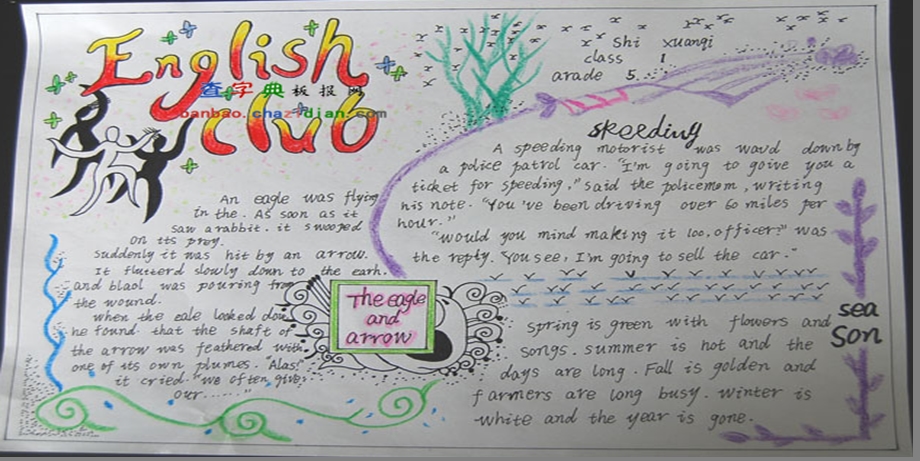 English
club
查字典板报网
banbao.chazidian.com
Shi xuanqi
class 1
arade 5
An eagle was flying
in the. As soon as it
saw a rabbit. it swooped
on its prey.
suddenly it was hit by an arrow.
It fluttered slowly down to the earh.
and blaol was pouring from
the wound.
when the eale looked down
he found that the shaft of
the arrow was feathered with
one of its own plumes. "Alas!"
it cried. "we often give
our......"
The eagle
and
arrow
speeding
A speeding motorist was wavd down by
a police patrol car. "I'm going to goive you a
ticket for speeding," said the policemom, writing
his note. "You've been driving over 60 miles per
hour."
"would you mind making it 100, officer?" was
the reply. You see, I'm going to sell the car."
sea
son
spring is green with flowers and
songs. summer is hot and the
days are long. Fall is golden and
farmers are long busy. winter is
white and the year is gone.